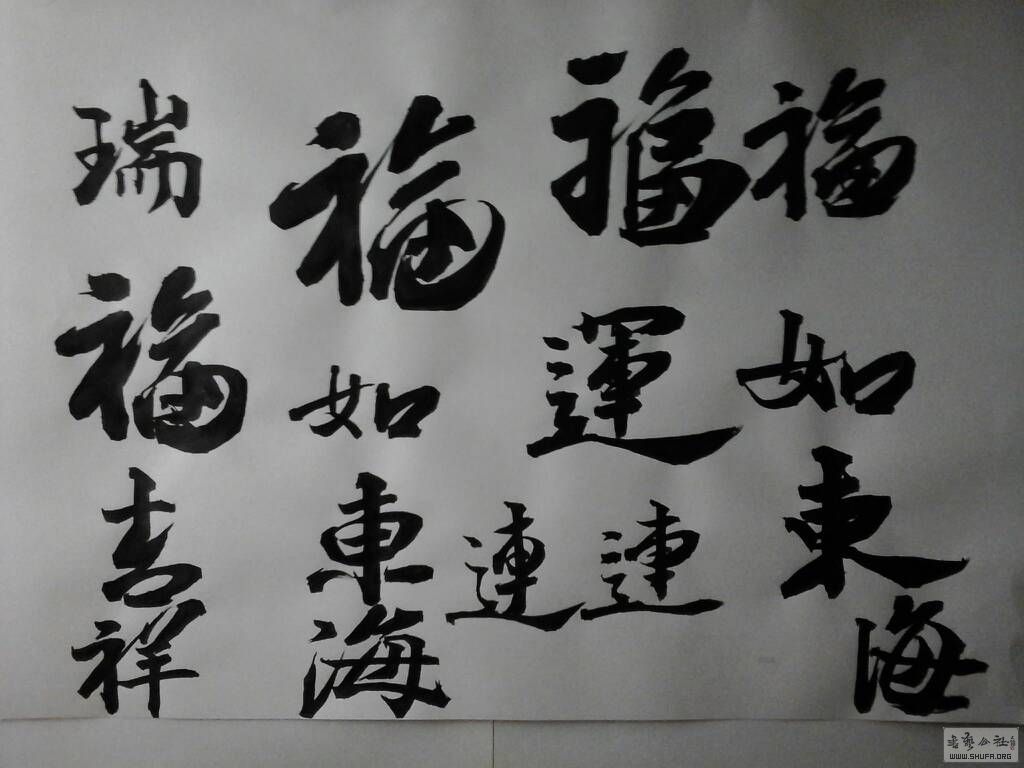 福如東海
福運連連
福如東海
瑞福吉祥
WWW.SHUFA.ORG